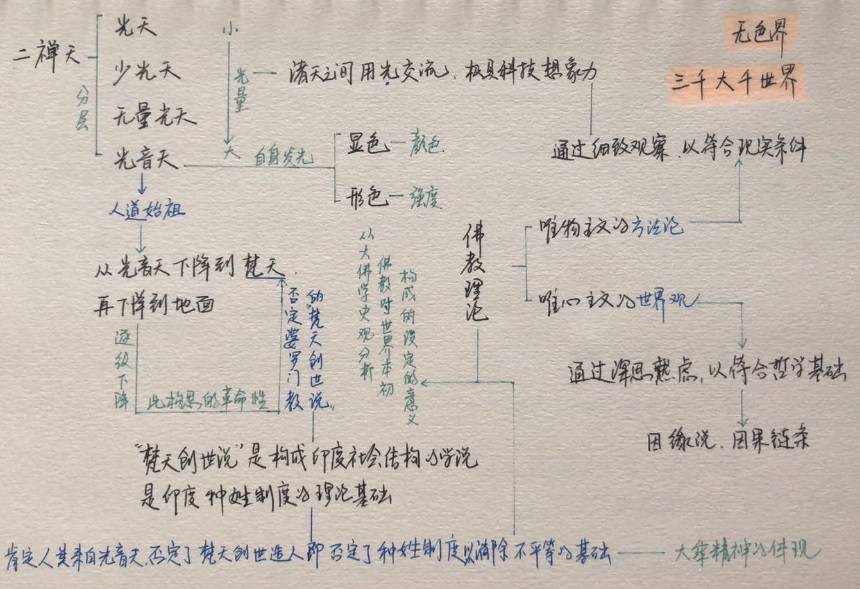 二禅天
分层
光天
少光天
无量光天
光音天
小
光量
大
诸天之间用光交流、极具科技想象力
无色界
三千大千世界
通过细致观察、以符合现实条件
自身发光
显色—颜色
形色—强度
人道始祖
从光音天下降到梵天、
再下降到地面
逐级下降
此构思的革命性
否定婆罗门教
的“梵天创世说”
从大佛学史观分析
佛教对世界本初
构成的设定的意义
佛教理论
唯物主义的方法论
唯心主义的世界观
通过深思熟虑，以符合哲学基础
因缘说、因果链条
“梵天创世说”是构成印度社会结构的学说
是印度种姓制度的理论基础
肯定人类来自光音天、否定了梵天创世造人即否定了种姓制度以消除不平等的基础——大乘精神的体现